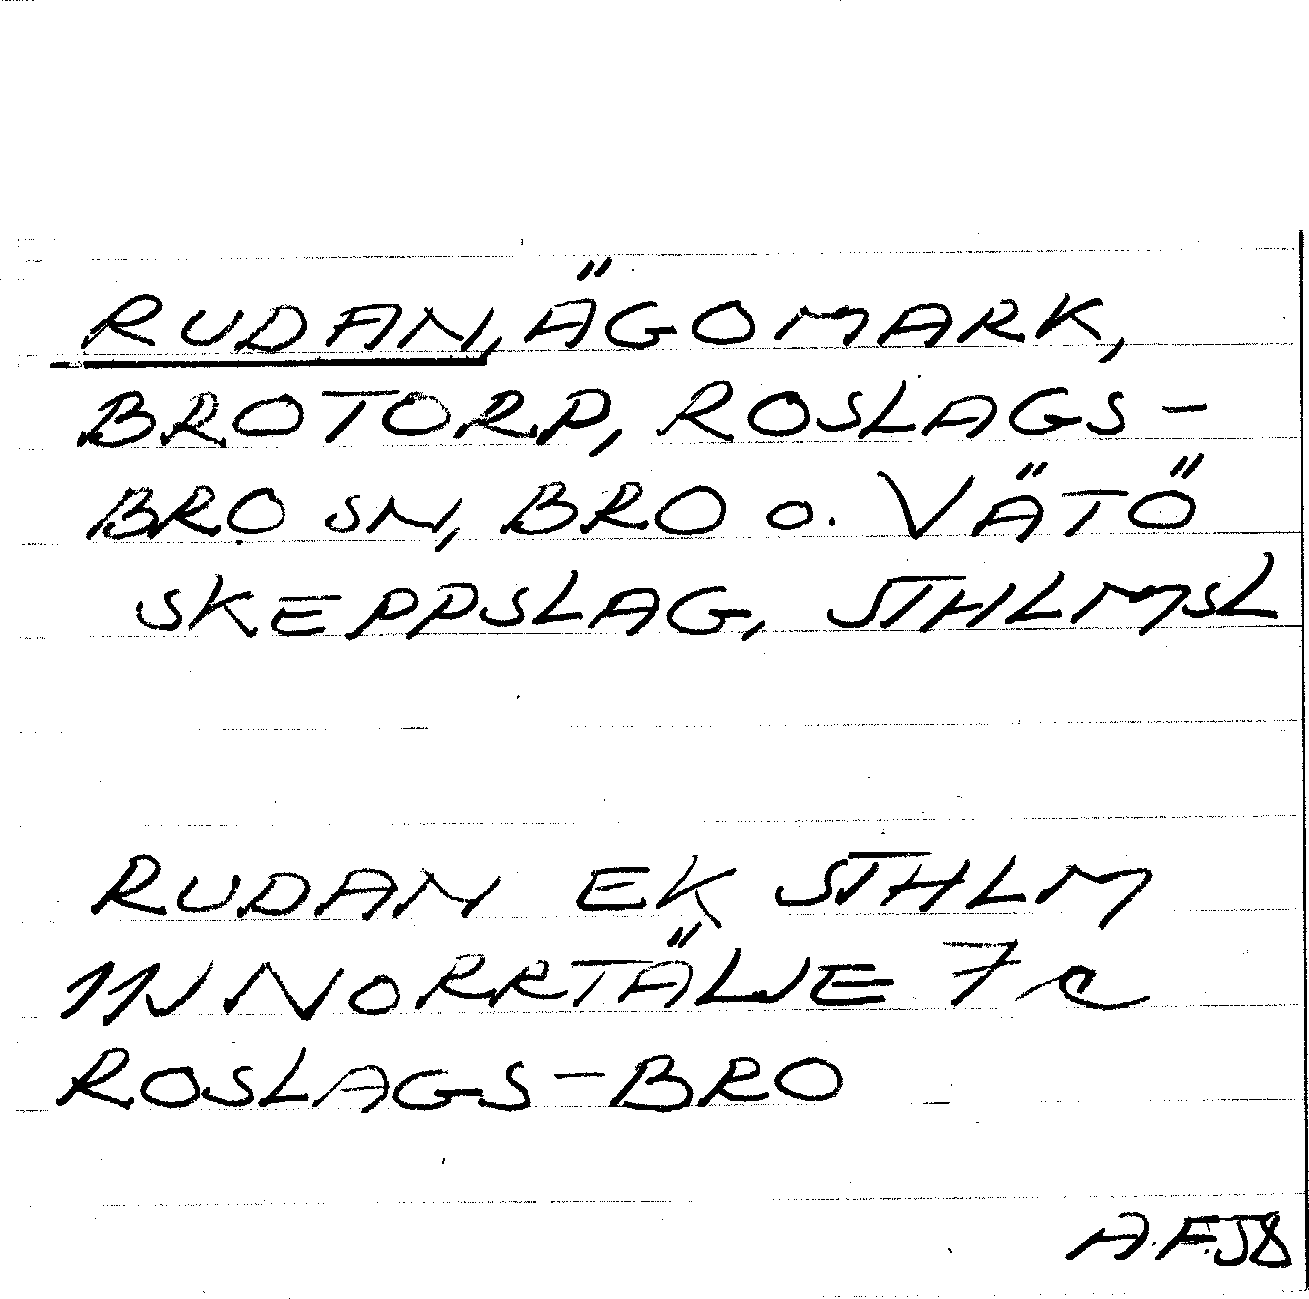 RUDAN, ÄGOMARK,
BROTORP, ROSLAGS-
BRO SN, BRO O. VÄTÖ
SKEPPSLAG, STHLMSL
RUDAN EK STHLM
11J NORRTÄLJE 7c
ROSLAGS-BRO